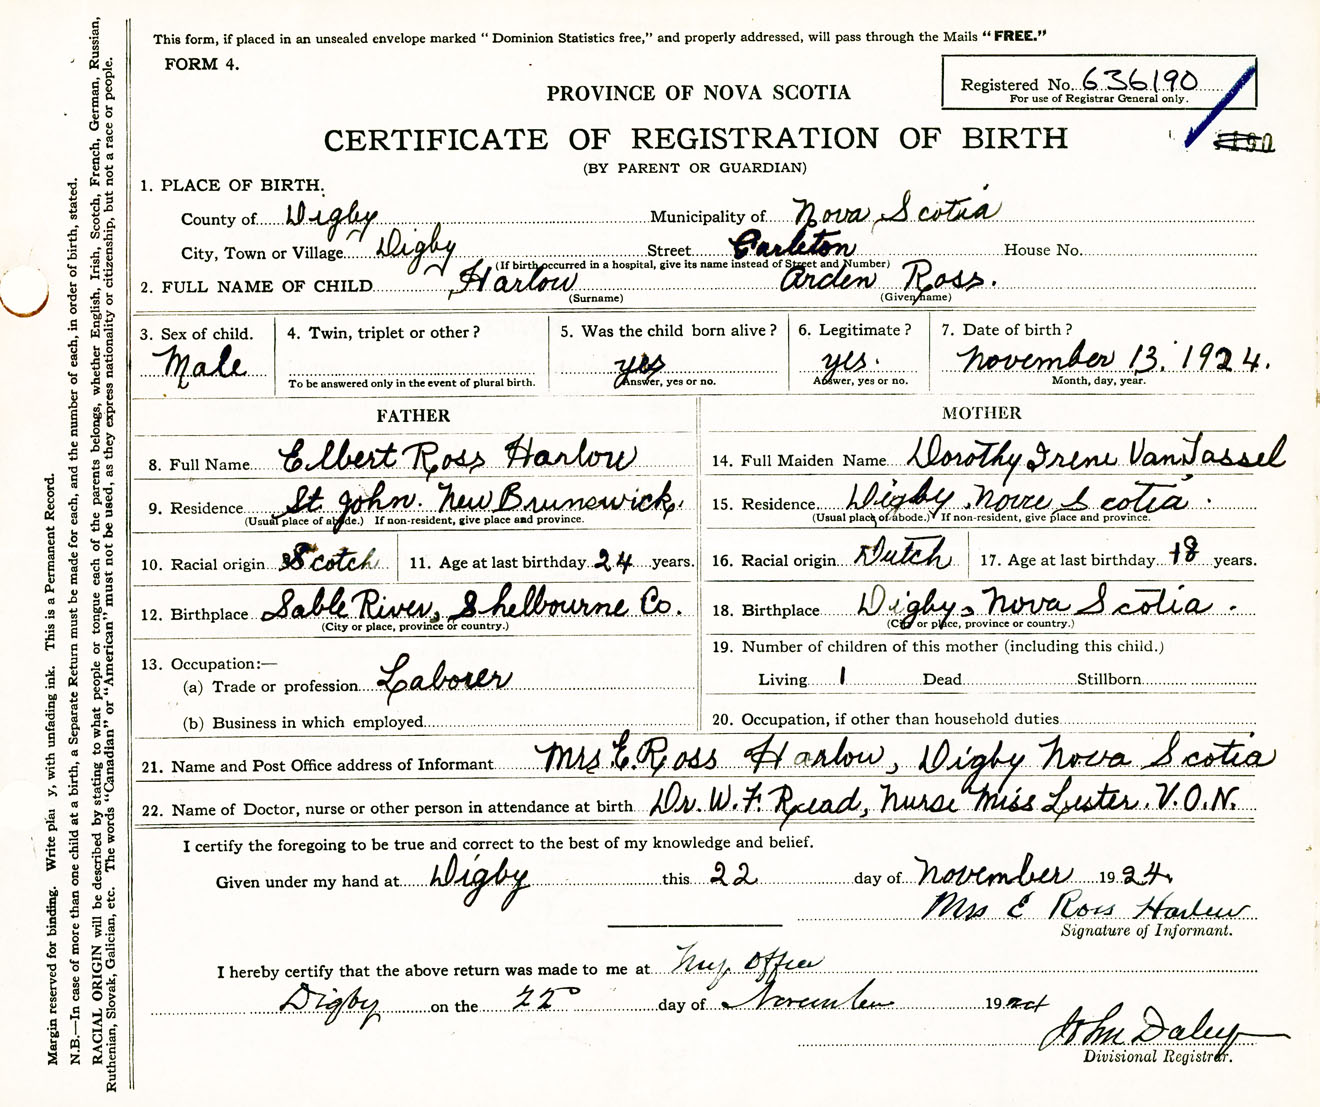 This form, if placed in an unsealed envelope marked "Dominion Statistics free," and properly addressed, will pass through the Mails "FREE."
FORM 4.
Registered No. 636190
For use of Registrar General only.
PROVINCE OF NOVA SCOTIA
CERTIFICATE OF REGISTRATION OF BIRTH
(BY PARENT OR GUARDIAN)
1. PLACE OF BIRTH.
County of Digby Municipality of Nova Scotia
City, Town or Village Digby Street Carleton House No.
(If birth occurred in a hospital, give its name instead of Street and Number)
2. FULL NAME OF CHILD Harlow Arden Ross.
(Surname) (Given name)
3. Sex of child. 4. Twin, triplet or other? 5. Was the child born alive? 6. Legitimate? 7. Date of birth?
Male yes yes. November 13. 1924.
To be answered only in the event of plural birth. Answer, yes or no. Answer, yes or no. Month, day, year.
FATHER MOTHER
8. Full Name Elbert Ross Harlow 14. Full Maiden Name Dorothy Irene VanTassel
9. Residence St. John. New Brunswick. 15. Residence Digby, Nova Scotia.
(Usual place of abode.) If non-resident, give place and province. (Usual place of abode.) If non-resident, give place and province.
10. Racial origin Scotch 11. Age at last birthday 24 years. 16. Racial origin Dutch 17. Age at last birthday 18 years.
12. Birthplace Sable River, Shelbourne Co. 18. Birthplace Digby, Nova Scotia.
(City or place, province or country.) (City or place, province or country.)
13. Occupation:— 19. Number of children of this mother (including this child.)
(a) Trade or profession Laborer Living 1 Dead Stillborn
(b) Business in which employed 20. Occupation, if other than household duties
21. Name and Post Office address of Informant Mrs. E. Ross Harlow, Digby Nova Scotia
22. Name of Doctor, nurse or other person in attendance at birth Dr. W. F. Read, Nurse Miss Lester. V.O.N.
I certify the foregoing to be true and correct to the best of my knowledge and belief.
Given under my hand at Digby this 22 day of November 1924.
Mrs E Ross Harlow
Signature of Informant.
I hereby certify that the above return was made to me at my office
Digby on the 22 day of November 1924
John Daley
Divisional Registrar.
Margin reserved for binding. Write plainly, with unfading ink. This is a Permanent Record.
N.B.—In case of more than one child at a birth, a Separate Return must be made for each, and the number of each, in order of birth, stated.
RACIAL ORIGIN will be described by stating to what people or tongue each of the parents belongs, whether English, Irish, Scotch, French, German, Russian,
Ruthenian, Slovak, Galician, etc. The words "Canadian" or "American" must not be used, as they express nationality or citizenship, but not a race or people.